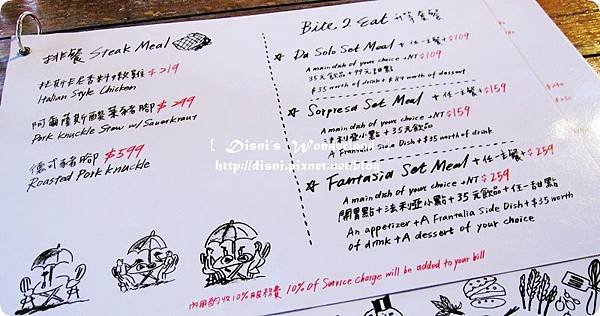 排餐 Steak Meal
托斯卡尼香料烤雞 $219
Italian Style Chicken
阿爾薩斯酸菜豬腳 $299
Pork Knuckle Stew w/ Sauerkraut
德式豬腳 $599
Roasted Pork Knuckle
Bite 2 Eat 升等套餐
Da Solo Set Meal + 任一主餐 + $109
A main dish of your choice + NT $109
35元飲品 + 99元甜點
$35 worth of drink + $99 worth of dessert
Sorpresa Set Meal + 任一主餐 + $159
A main dish of your choice + NT $159
法利婭小點 + 35元飲品
A Frantalia Side Dish + $35 worth of drink
Fantasia Set Meal + 任一主餐 + $259
A main dish of your choice + NT $259
開胃點 + 法利婭小點 + 35元飲品 + 任一甜點
An appetizer + A Frantalia Side Dish + $35 worth
of drink + A dessert of your choice
[ Disni's Wonderland ]
http://disni.pixnet.net/blog
內用酌收10%服務費 10% of Service Charge will be added to your bill